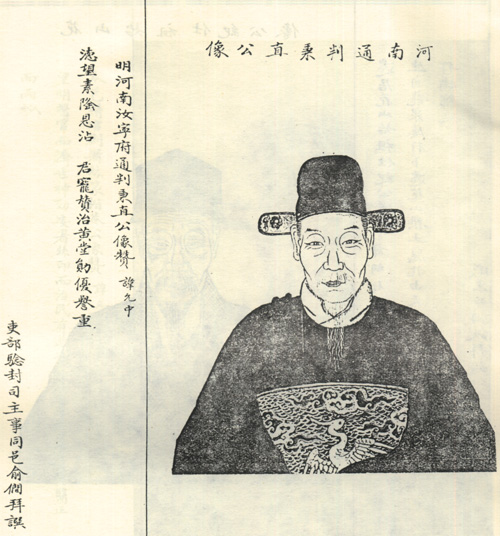 河南通判秉直公像
明河南汝寧府通判秉直公像贊 諱九中
德望素隆恩沾 君寵贊治黄堂勛優譽重
吏部驗封司主事同邑俞僩拜譔